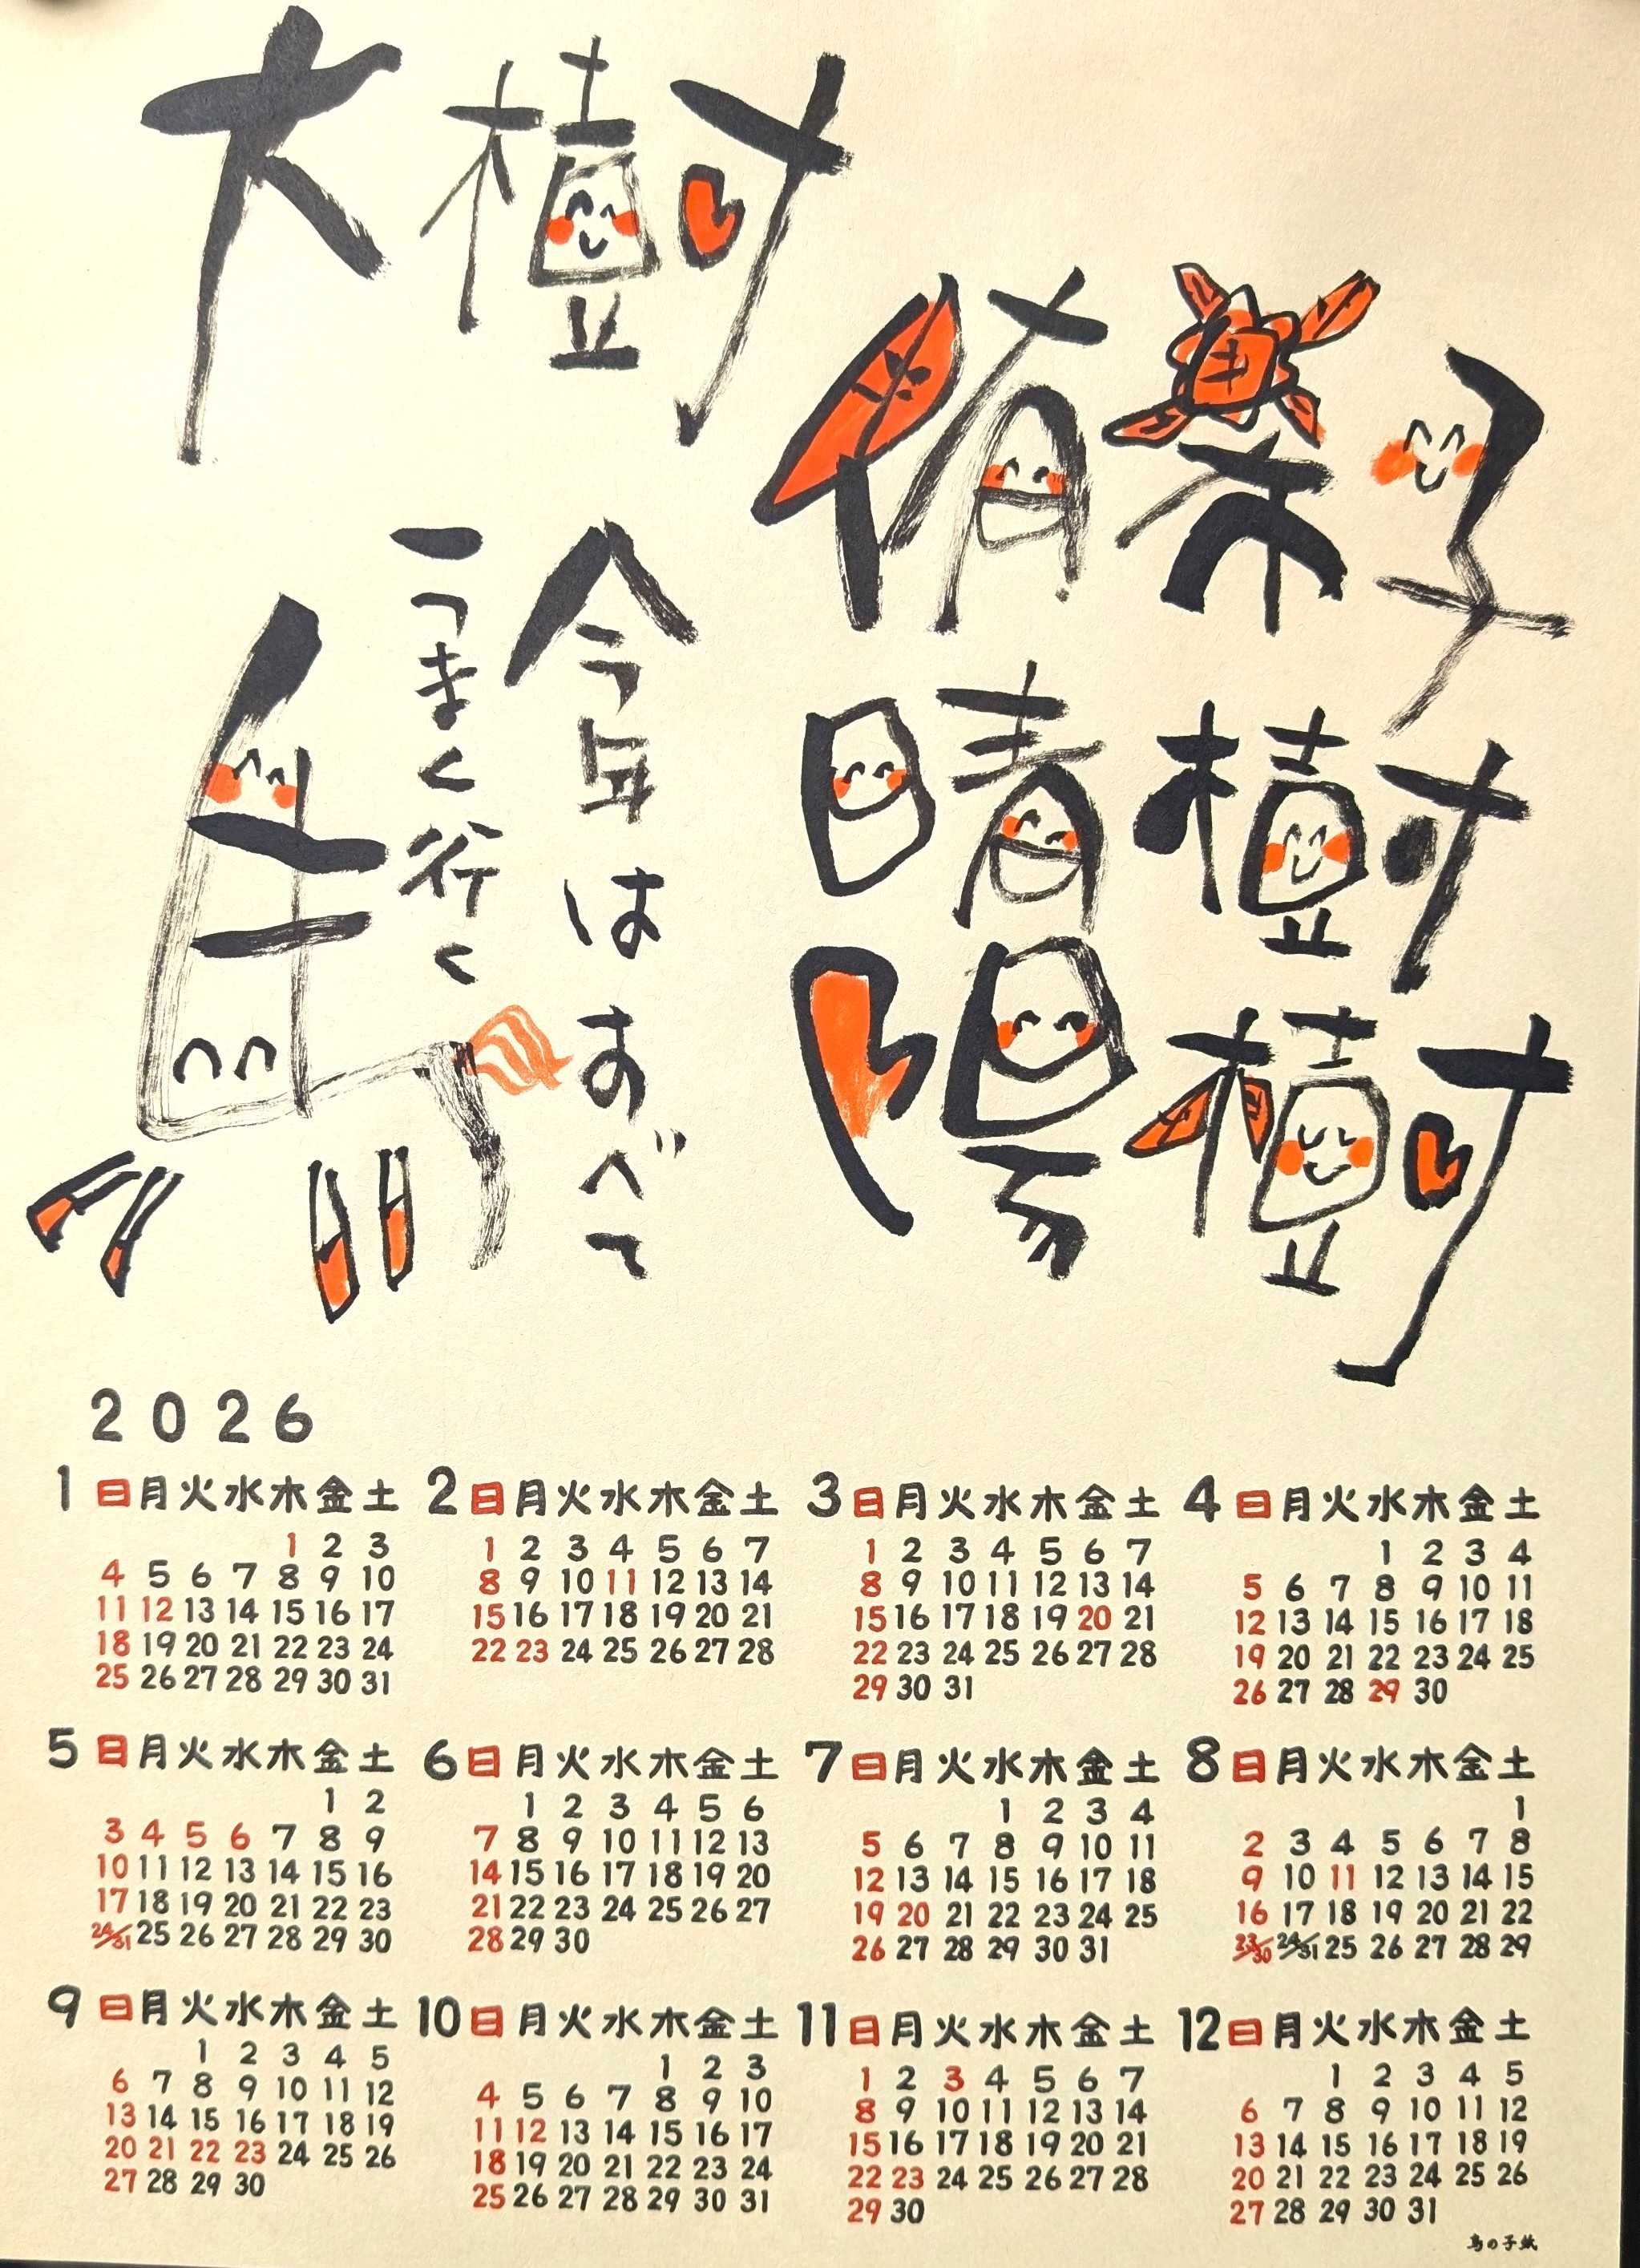 大樹
侑楽子
晴樹
陽樹
今年はすべて
うまく行く
午
2026
1 日月火水木金土
1 2 3
4 5 6 7 8 9 10
11 12 13 14 15 16 17
18 19 20 21 22 23 24
25 26 27 28 29 30 31
2 日月火水木金土
1 2 3 4 5 6 7
8 9 10 11 12 13 14
15 16 17 18 19 20 21
22 23 24 25 26 27 28
3 日月火水木金土
1 2 3 4 5 6 7
8 9 10 11 12 13 14
15 16 17 18 19 20 21
22 23 24 25 26 27 28
29 30 31
4 日月火水木金土
1 2 3 4
5 6 7 8 9 10 11
12 13 14 15 16 17 18
19 20 21 22 23 24 25
26 27 28 29 30
5 日月火水木金土
1 2
3 4 5 6 7 8 9
10 11 12 13 14 15 16
17 18 19 20 21 22 23
24/31 25 26 27 28 29 30
6 日月火水木金土
1 2 3 4 5 6
7 8 9 10 11 12 13
14 15 16 17 18 19 20
21 22 23 24 25 26 27
28 29 30
7 日月火水木金土
1 2 3 4
5 6 7 8 9 10 11
12 13 14 15 16 17 18
19 20 21 22 23 24 25
26 27 28 29 30 31
8 日月火水木金土
1
2 3 4 5 6 7 8
9 10 11 12 13 14 15
16 17 18 19 20 21 22
23/30 24/31 25 26 27 28 29
9 日月火水木金土
1 2 3 4 5
6 7 8 9 10 11 12
13 14 15 16 17 18 19
20 21 22 23 24 25 26
27 28 29 30
10 日月火水木金土
1 2 3
4 5 6 7 8 9 10
11 12 13 14 15 16 17
18 19 20 21 22 23 24
25 26 27 28 29 30 31
11 日月火水木金土
1 2 3 4 5 6 7
8 9 10 11 12 13 14
15 16 17 18 19 20 21
22 23 24 25 26 27 28
29 30
12 日月火水木金土
1 2 3 4 5
6 7 8 9 10 11 12
13 14 15 16 17 18 19
20 21 22 23 24 25 26
27 28 29 30 31
鳥の子紙